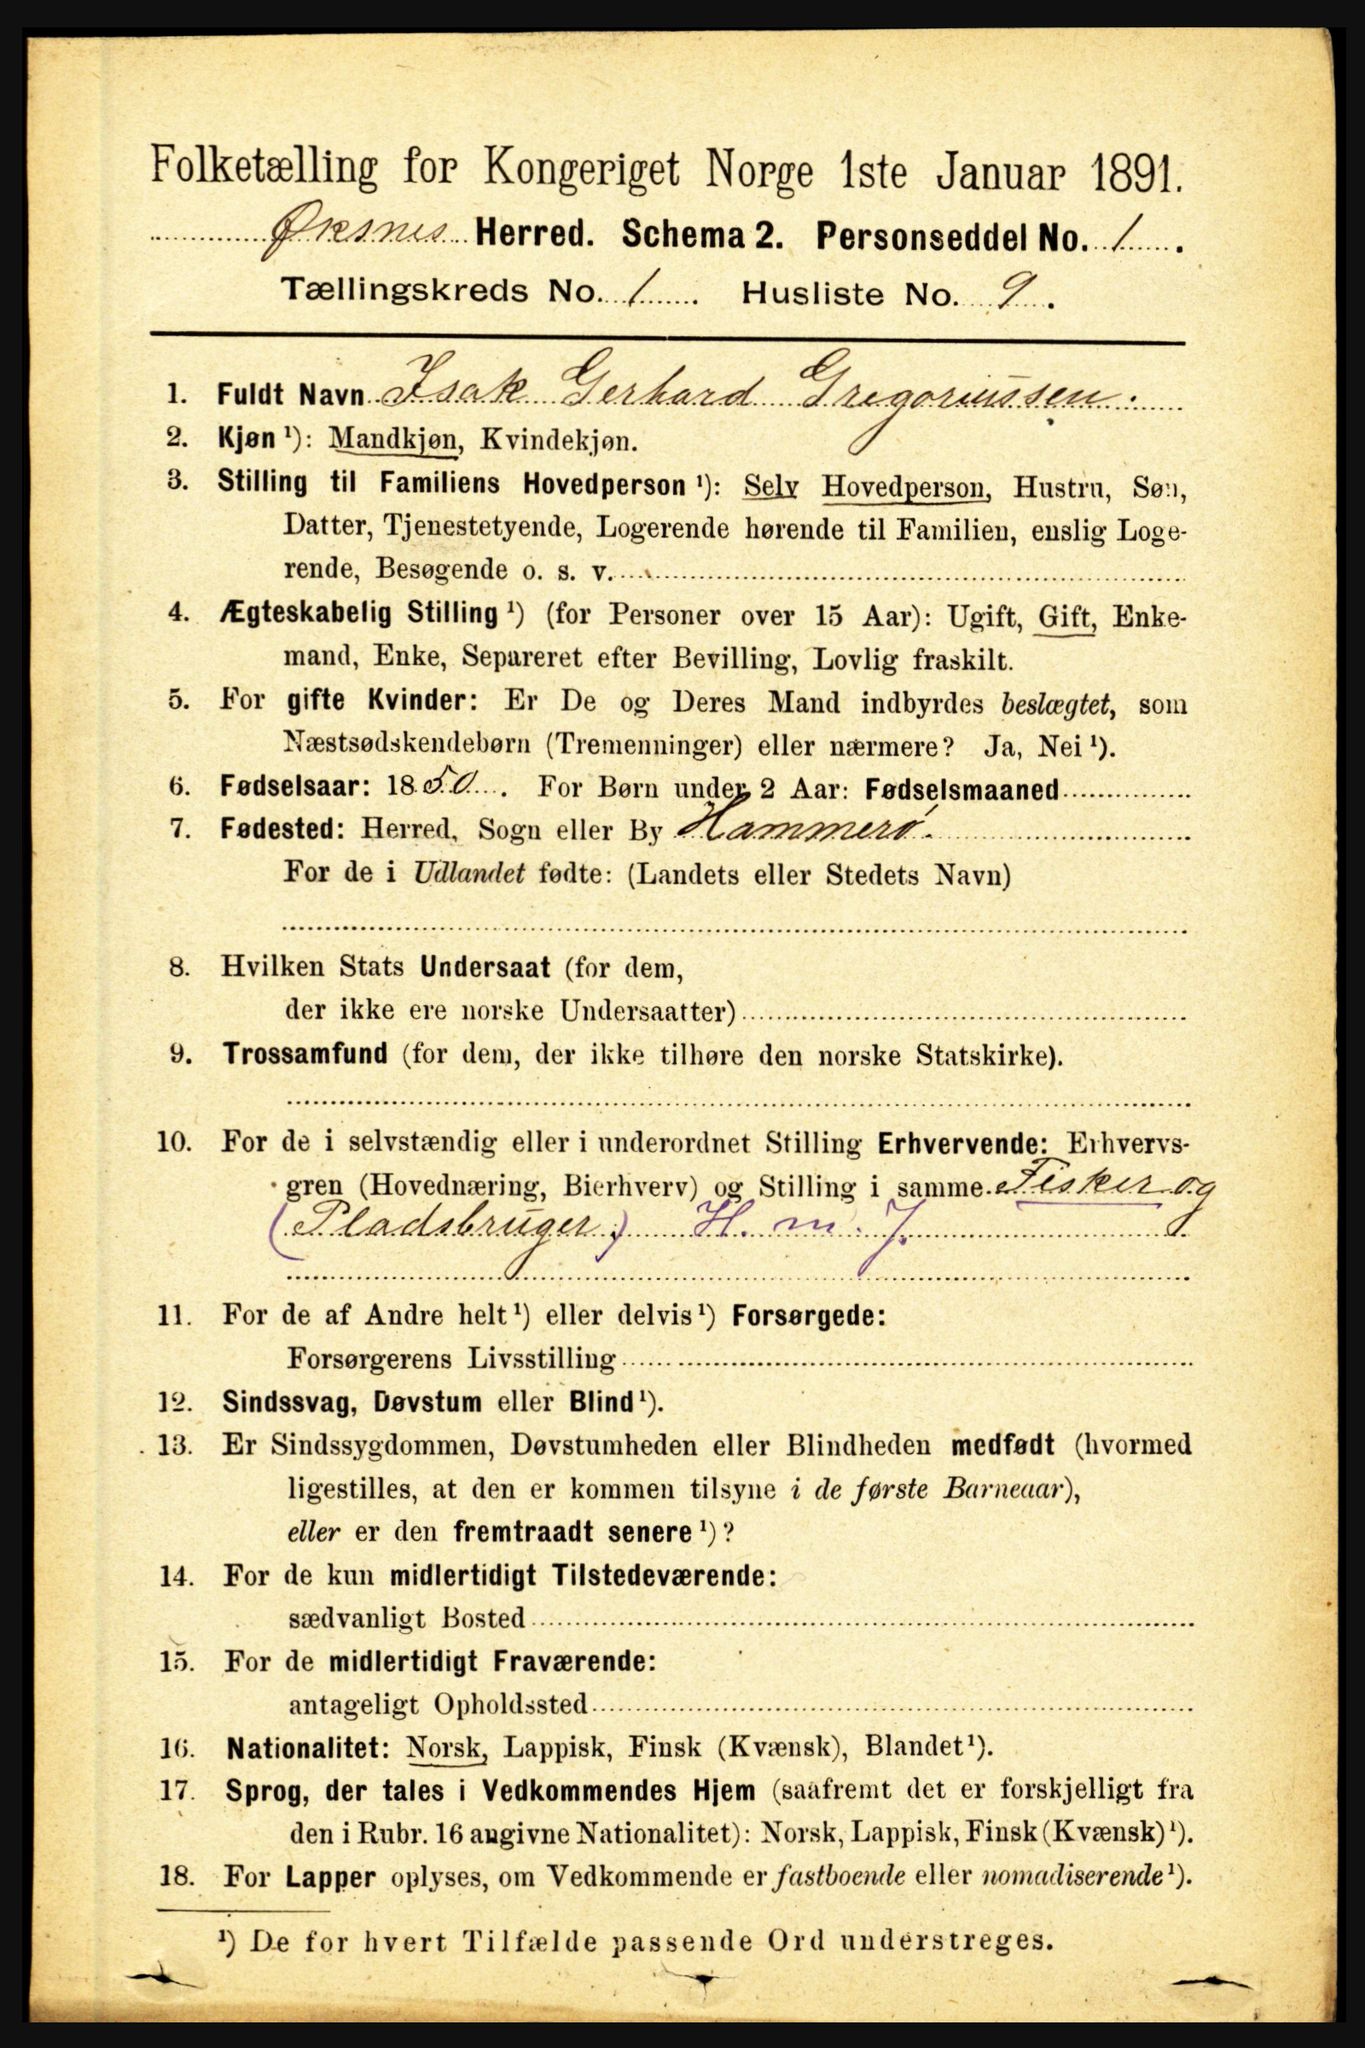 Folketælling for Kongeriget Norge 1ste Januar 1891.
Øksnes Herred. Schema 2. Personseddel No. 1.
Tællingskreds No. 1. Husliste No. 9.
1. Fuldt Navn Isak Gerhard Gregoriussen.
2. Kjøn ¹): Mandkjøn, Kvindekjøn.
3. Stilling til Familiens Hovedperson ¹): Selv Hovedperson, Hustru, Søn,
Datter, Tjenestetyende, Logerende hørende til Familien, enslig Loge-
rende, Besøgende o. s. v.
4. Ægteskabelig Stilling ¹) (for Personer over 15 Aar): Ugift, Gift, Enke-
mand, Enke, Separeret efter Bevilling, Lovlig fraskilt.
5. For gifte Kvinder: Er De og Deres Mand indbyrdes beslægtet, som
Næstsødskendebørn (Tremenninger) eller nærmere? Ja, Nei ¹).
6. Fødselsaar: 1850. For Børn under 2 Aar: Fødselsmaaned
7. Fødested: Herred, Sogn eller By Hammerø.
For de i Udlandet fødte: (Landets eller Stedets Navn)
8. Hvilken Stats Undersaat (for dem,
der ikke ere norske Undersaatter)
9. Trossamfund (for dem, der ikke tilhøre den norske Statskirke).
10. For de i selvstændig eller i underordnet Stilling Erhvervende: Erhvervs-
gren (Hovednæring, Bierhverv) og Stilling i samme. Fisker og
(Pladsbruger.) H. m. J.
11. For de af Andre helt ¹) eller delvis ¹) Forsørgede:
Forsørgerens Livsstilling
12. Sindssvag, Døvstum eller Blind ¹).
13. Er Sindssygdommen, Døvstumheden eller Blindheden medfødt (hvormed
ligestilles, at den er kommen tilsyne i de første Barneaar),
eller er den fremtraadt senere ¹)?
14. For de kun midlertidigt Tilstedeværende:
sædvanligt Bosted
15. For de midlertidigt Fraværende:
antageligt Opholdssted
16. Nationalitet: Norsk, Lappisk, Finsk (Kvænsk), Blandet ¹).
17. Sprog, der tales i Vedkommendes Hjem (saafremt det er forskjelligt fra
den i Rubr. 16 angivne Nationalitet): Norsk, Lappisk, Finsk (Kvænsk) ¹).
18. For Lapper oplyses, om Vedkommende er fastboende eller nomadiserende ¹).
¹) De for hvert Tilfælde passende Ord understreges.